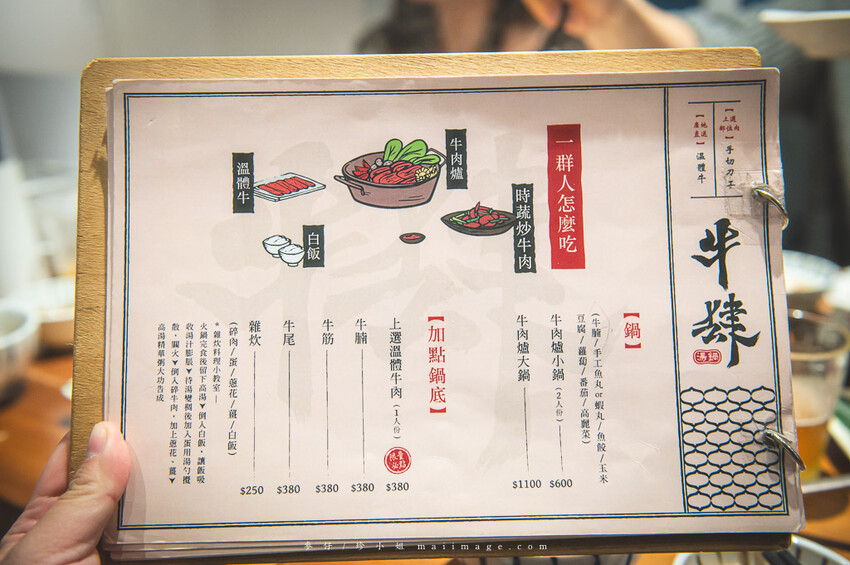 【上選肉部位】手切刀子
【產地直送】溫體牛
牛肆
湯鍋
一群人怎麼吃
牛肉爐
時蔬炒牛肉
溫體牛
白飯
【鍋】
(牛腩/手工魚丸or蝦丸/魚餃/玉米
豆腐/蘿蔔/番茄/高麗菜)
牛肉爐小鍋(2人份) $600
牛肉爐大鍋 $1100
【加點鍋底】
上選溫體牛肉(1人份) $380
牛腩 $380
牛筋 $380
牛尾 $380
雜炊 $250
(碎肉/蛋/蔥花/薑/白飯)
*雜炊料理小教室—
火鍋完食後留下高湯▼倒入白飯,讓飯吸
收湯汁膨脹▼待湯變稠後加入蛋用湯勺攪
散,關火▼倒入碎牛肉,加上蔥花、薑▼
高湯精華粥大功告成
maiimage.com